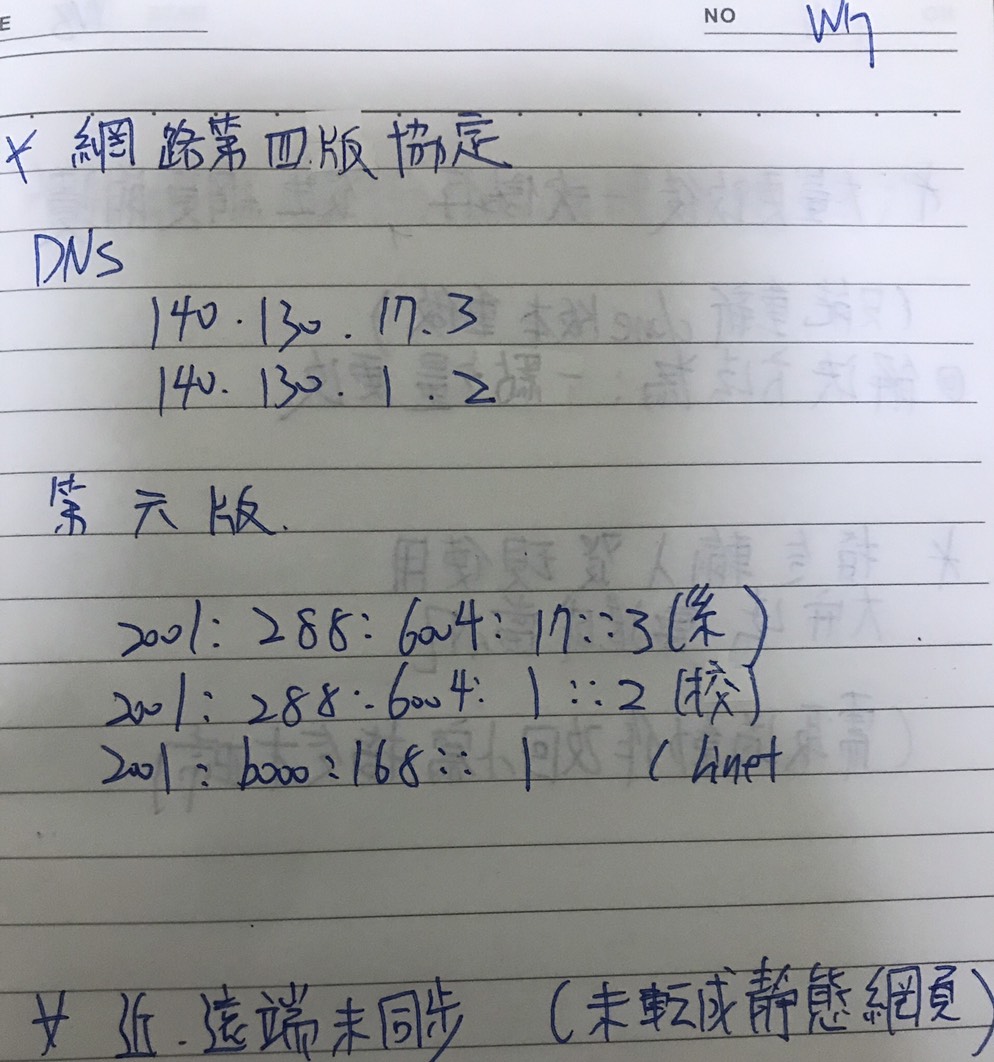 E
NO Wn
* 網路第四版協定
DNS
140.130.17.3
140.130.1.2
第六版.
2001:288:6004:17::3(系)
2001:288:6004:1::2(校)
2001:b000:168::1 (hinet
* 近.遠端未同步 (未転成靜態網頁)